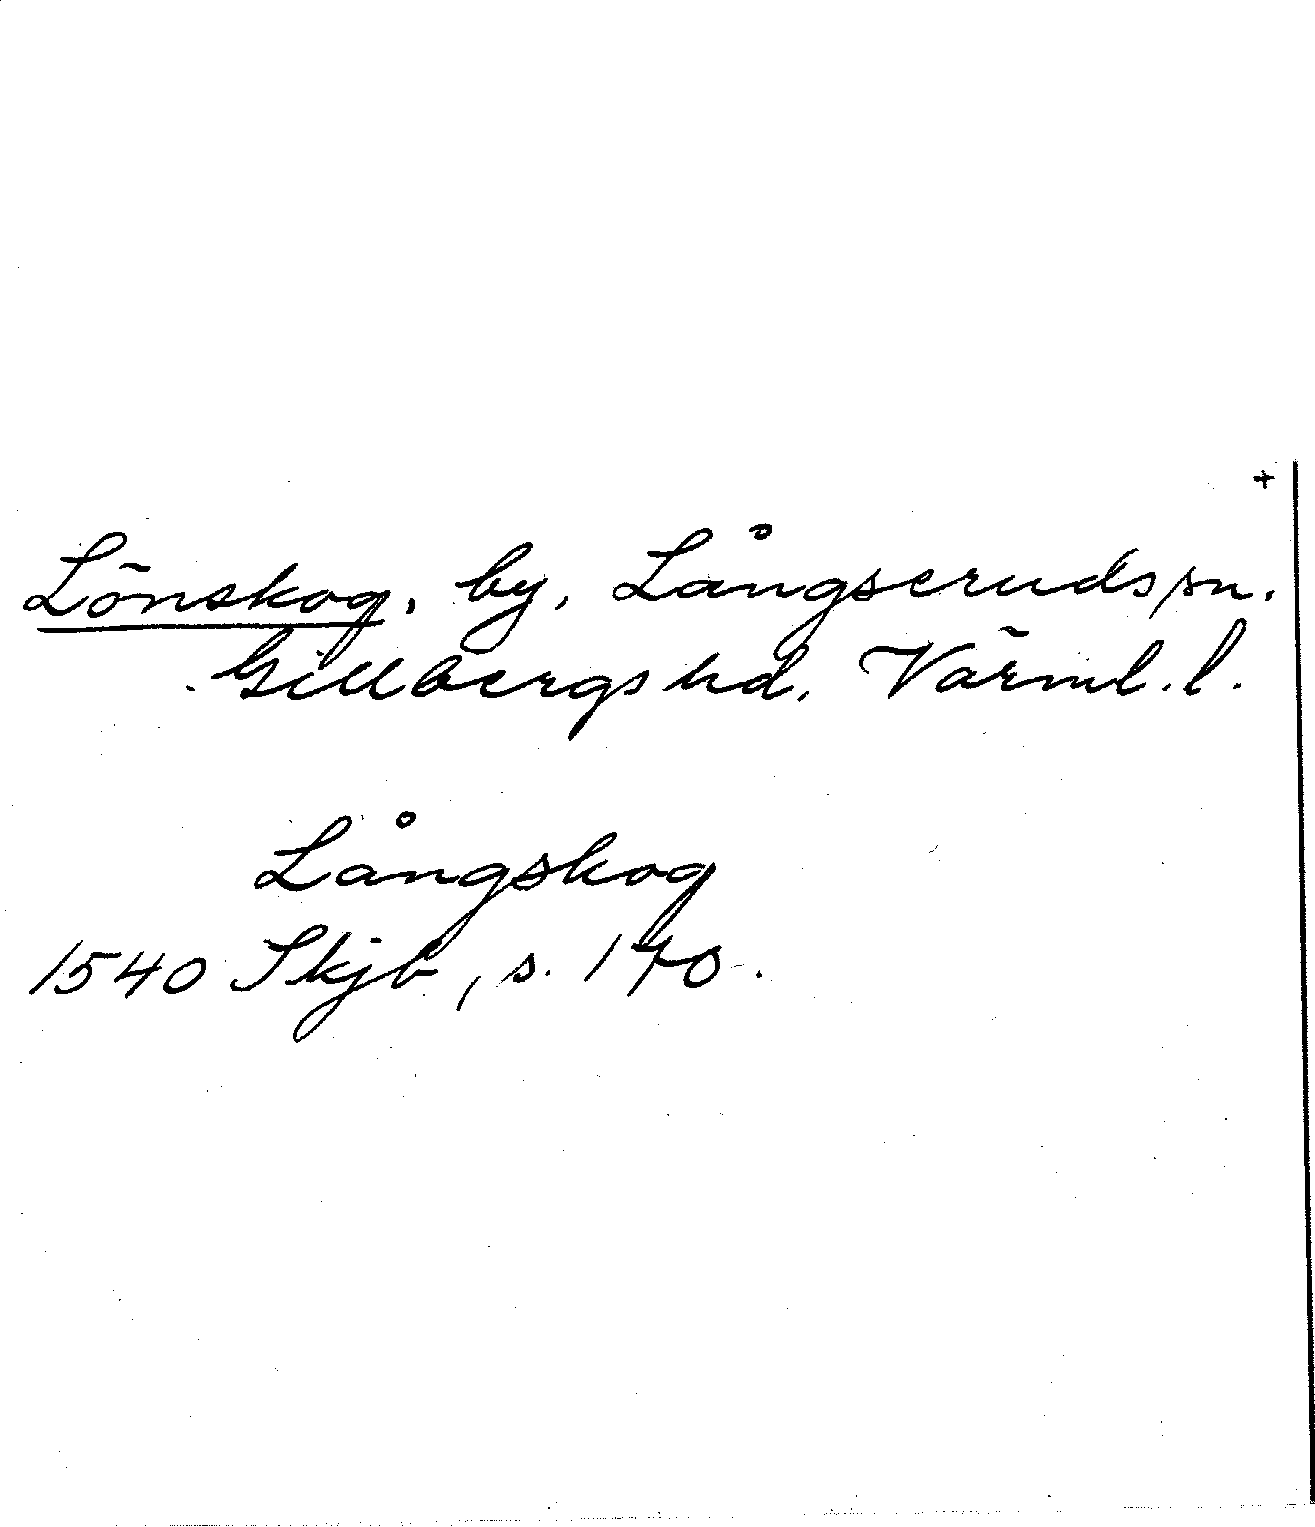 +
Lönskog, by, Långseruds sn.
Gillbergs hd, Värml. l.
Långskog
1540 Skjb, s. 170.